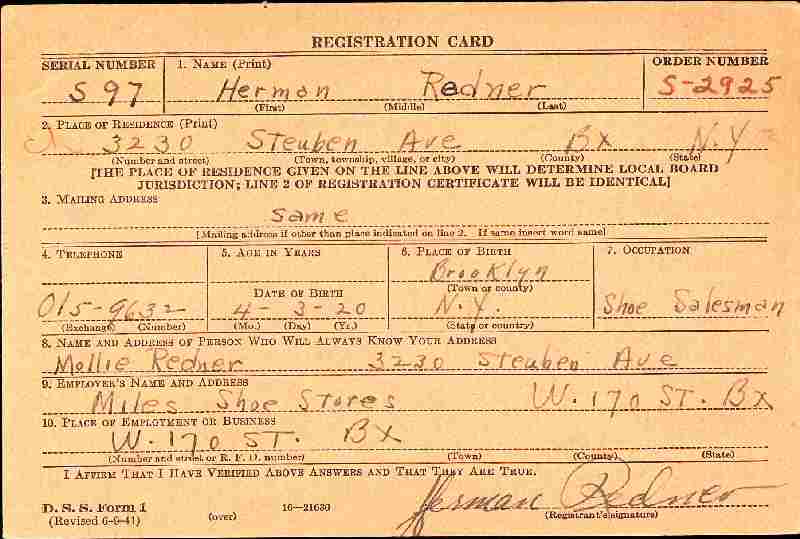 REGISTRATION CARD
SERIAL NUMBER 1. NAME (Print) ORDER NUMBER
S 97 Herman Redner S-2925
(First) (Middle) (Last)
2. PLACE OF RESIDENCE (Print)
3230 Steuben Ave Bx N.Y
(Number and street) (Town, township, village, or city) (County) (State)
[THE PLACE OF RESIDENCE GIVEN ON THE LINE ABOVE WILL DETERMINE LOCAL BOARD
JURISDICTION; LINE 2 OF REGISTRATION CERTIFICATE WILL BE IDENTICAL]
3. MAILING ADDRESS
Same
[Mailing address if other than place indicated on line 2. If same insert word same]
4. TELEPHONE 5. AGE IN YEARS 6. PLACE OF BIRTH 7. OCCUPATION
Brooklyn
DATE OF BIRTH (Town or county)
Ol5-9632 4-3-20 N.Y. Shoe Salesman
(Exchange) (Number) (Mo.) (Day) (Yr.) (State or country)
8. NAME AND ADDRESS OF PERSON WHO WILL ALWAYS KNOW YOUR ADDRESS
Mollie Redner 3230 Steuben Ave
9. EMPLOYER'S NAME AND ADDRESS
Miles Shoe Stores W. 170 ST. Bx
10. PLACE OF EMPLOYMENT OR BUSINESS
W. 170 ST. Bx
(Number and street or R. F. D. number) (Town) (County) (State)
I AFFIRM THAT I HAVE VERIFIED ABOVE ANSWERS AND THAT THEY ARE TRUE.
D. S. S. Form 1
(Revised 6-9-41) (over) 16—21630 Herman Redner
(Registrant's signature)